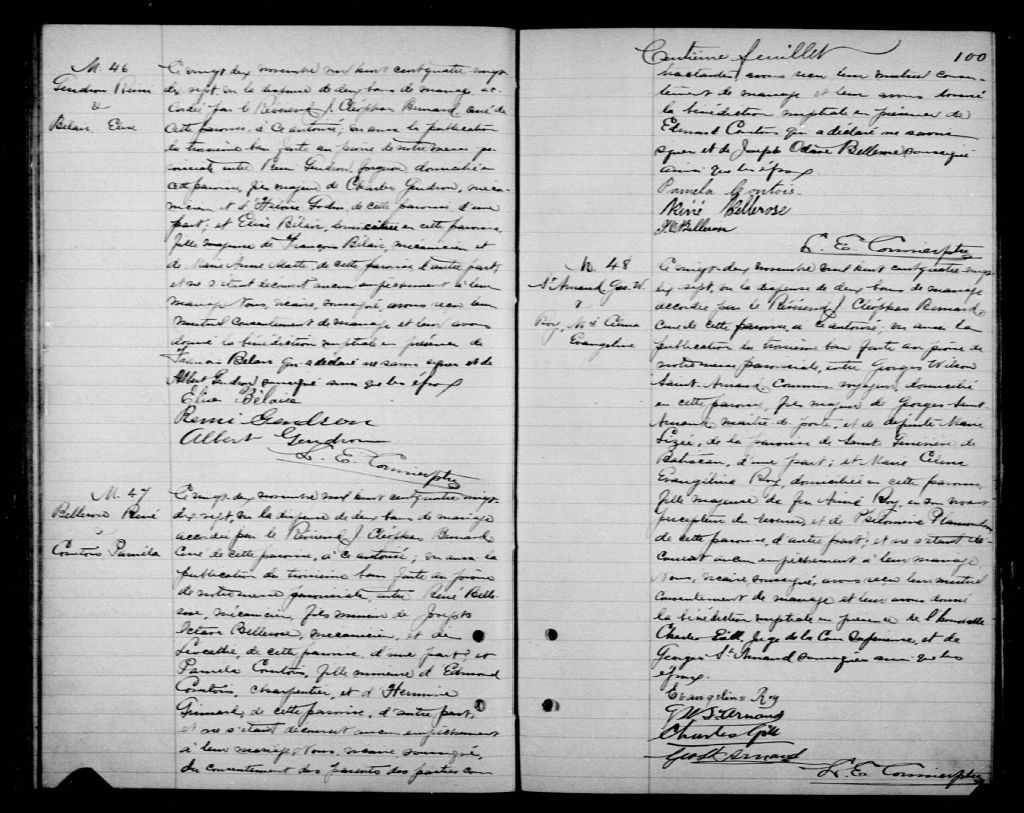 M. 46
Gendron Remi
&
Belair, Elise
Le vingt deux novembre mil huit cent quatre vingt
dix sept, en la dispense de deux bans de mariage, ac-
cordée par le Révérend J. Cléophas Bernard, curé de
cette paroisse, à ce autorisé; vu aussi la publication
du troisième ban faite au prône de notre messe pa-
roissiale entre Remi Gendron, forgeron, domicilié en
cette paroisse, fils majeur de Charles Gendron, méca-
nicien et d'Hélène de cette paroisse d'une
part; et Elise Bélair, domiciliée en cette paroisse,
fille majeure de François Bélair, mécanicien et
de Marie Anne Matte, de cette paroisse, d'autre part;
et ne s'étant découvert aucun empêchement à leur
mariage Nous, vicaire, soussigné, avons reçu leur
mutuel consentement de mariage et leur avons
donné la bénédiction nuptiale en présence de
Francois Belair qui a déclaré ne savoir signer et de
Albert Gendron soussigné ainsi que les époux
Elise Bélair
Remi Gendron
Albert Gendron
L. E. Cormier ptre
M. 47
Bellerose René
&
Courtois Paméla
Le vingt deux novembre mil huit cent quatre vingt
dix sept, en la dispense de deux bans de mariage
accordée par le Révérend J. Cléophas Bernard
Curé de cette paroisse, à ce autorisé; vu aussi la
publication du troisième ban faite au prône
de notre messe paroissiale entre René Belle-
rose, mécanicien, fils mineur de Joseph
Octave Bellerose, mécanicien, et de
Léocadie, de cette paroisse, d'une part; et
Pamela Courtois, fille mineure d'Edmond
Courtois, charpentier, et d'Hermine
Grimard, de cette paroisse, d'autre part;
et ne s'étant découvert aucun empêchement
à leur mariage; Nous, vicaire, soussigné,
du consentement des parents des parties con-
Centième feuillet 100
tractantes avons reçu leur mutuel consen-
tement de mariage et leur avons donné
la bénédiction nuptiale en présence de
Edmond Courtois qui a déclaré ne savoir
signer et de Joseph Octave Bellerose soussigné
ainsi que les époux
Pamela Contois
Réné Bellerose
J. O. Bellerose
L. E. Cormier ptre
M. 48
St Arnaud, Geo. W.
&
Roy, Mie Célina
Evangeline
Le vingt-deux novembre mil huit cent quatre vingt
dix sept, en la dispense de deux bans de mariage
accordée par le Révérend J. Cléophas Bernard
Curé de cette paroisse, à ce autorisé; vu aussi la
publication du troisième ban faite au prône de
notre messe paroissiale, entre Georges Wilson
Saint Arnaud Commis voyageur, domicilié
en cette paroisse, fils majeur de Georges Saint
Arnaud maître de poste, et de défunte Marie
Lizée, de la paroisse de Saint Geneviève de
Batiscan, d'une part; et Marie Célina
Evangéline Roy, domiciliée en cette paroisse,
fille majeure de feu Aimé Roy, en son vivant
percepteur du revenu, et de Philomène Plamondon
de cette paroisse, d'autre part; et ne s'étant dé-
couvert aucun empêchement à leur mariage
Nous, vicaire soussigné, avons reçu leur mutuel
consentement de mariage et leur avons donné
la bénédiction nuptiale en présence de l'honorable
Charles Gill, Juge de la Cour Supérieure, et de
Georges St Arnaud soussignés ainsi que les
époux.
Evangeline Roy
G W St Arnaud
Charles Gill
Geo St Arnaud
L. E. Cormier ptre